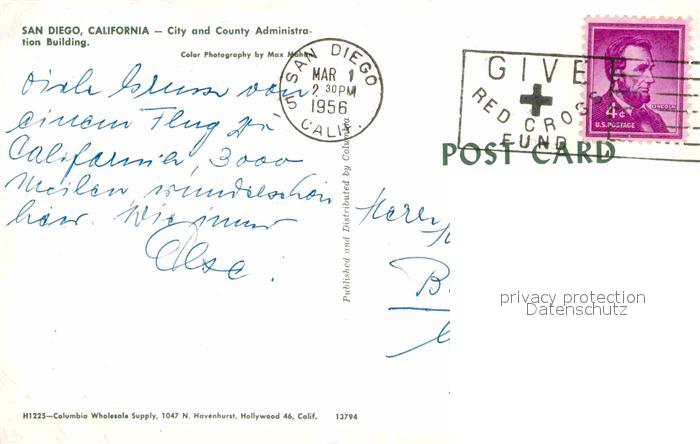 SAN DIEGO, CALIFORNIA — City and County Administra-
tion Building.
Color Photography by Max Mahan
Viele Grüsse von
einem Flug zu
Californien, 3000
Meilen, wunderschön
hier. Wie immer
Else.
SAN DIEGO
5
MAR 1
2 30 PM
1956
CALIF.
GIVE
RED CROSS
FUND
LINCOLN
4¢
U.S. POSTAGE
POST CARD
Published and Distributed by Columbia
Herrn
privacy protection
Datenschutz
H1225—Columbia Wholesale Supply, 1047 N. Havenhurst, Hollywood 46, Calif. 13794